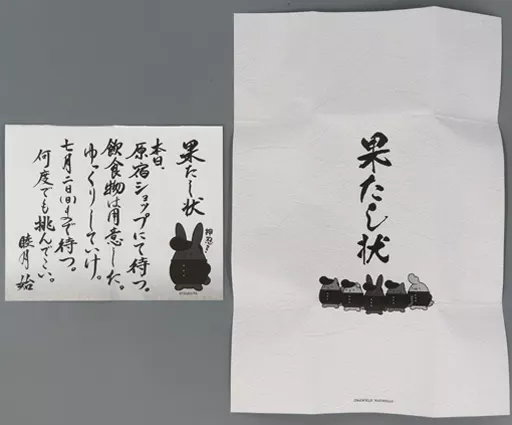 果たし状
本日、
原宿ショップにて待つ。
飲食物は用意した。
ゆっくりしていけ。
七月二日(日)まで待つ。
何度でも挑んでこい。
睦月始
押忍!!
果たし状